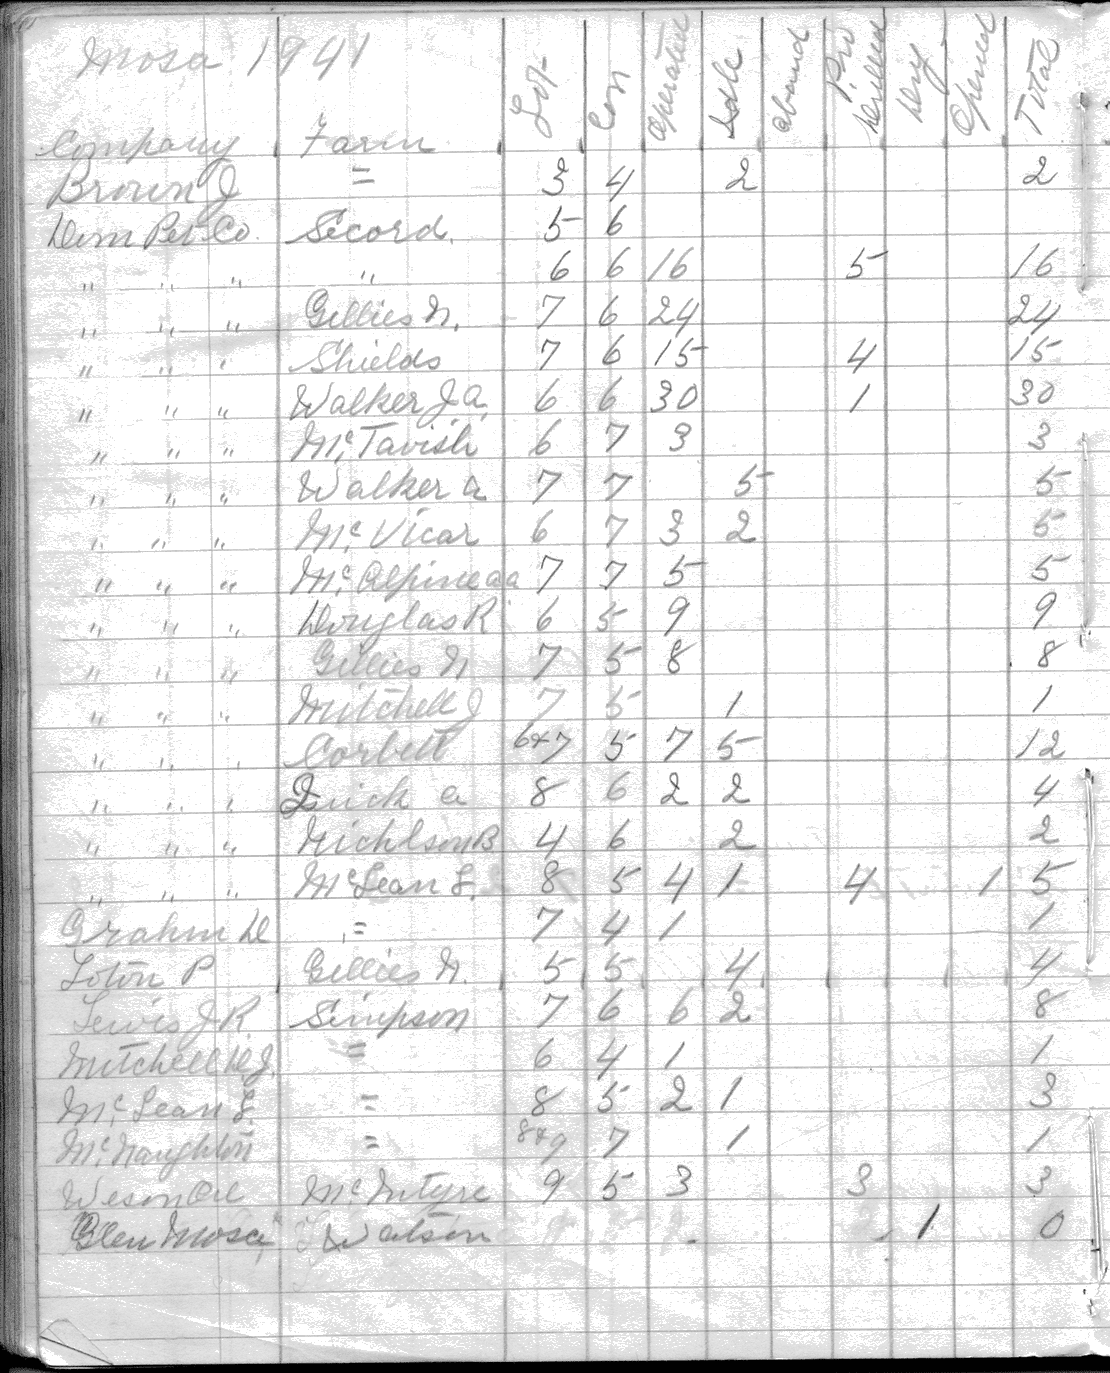 Mosa 1941
Company Farm Lot Con Operated Idle aband Pro Drilled Dry Opened Total
Brown J = 3 4 2 2
Dom Pet Co. Secord. 5 6
" " " " 6 6 16 5 16
" " " Gillies N. 7 6 24 24
" " " Shields 7 6 15 4 15
" " " Walker J a. 6 6 30 1 30
" " " McTavish 6 7 3 3
" " " Walker a 7 7 5 5
" " " McVicar 6 7 3 2 5
" " " McAlpine a a 7 7 5 5
" " " Douglas R 6 5 9 9
" " " Gillies N 7 5 8 8
" " " Mitchell J 7 5 1 1
" " " Corbett 6+7 5 7 5 12
" " " Quick a 8 6 2 2 4
" " " Nichlson B 4 6 2 2
" " " McLean L. 8 5 4 1 4 1 5
Grahm D = 7 4 1 1
Loton P Gillies N. 5 5 4 4
Lewis J R Simpson 7 6 6 2 8
Mitchell W J. = 6 4 1 1
McLean L = 8 5 2 1 3
McNaughton = 8+9 7 1 1
Weson Oil McIntyre 9 5 3 3 3
Glen Mosa Watson 1 0